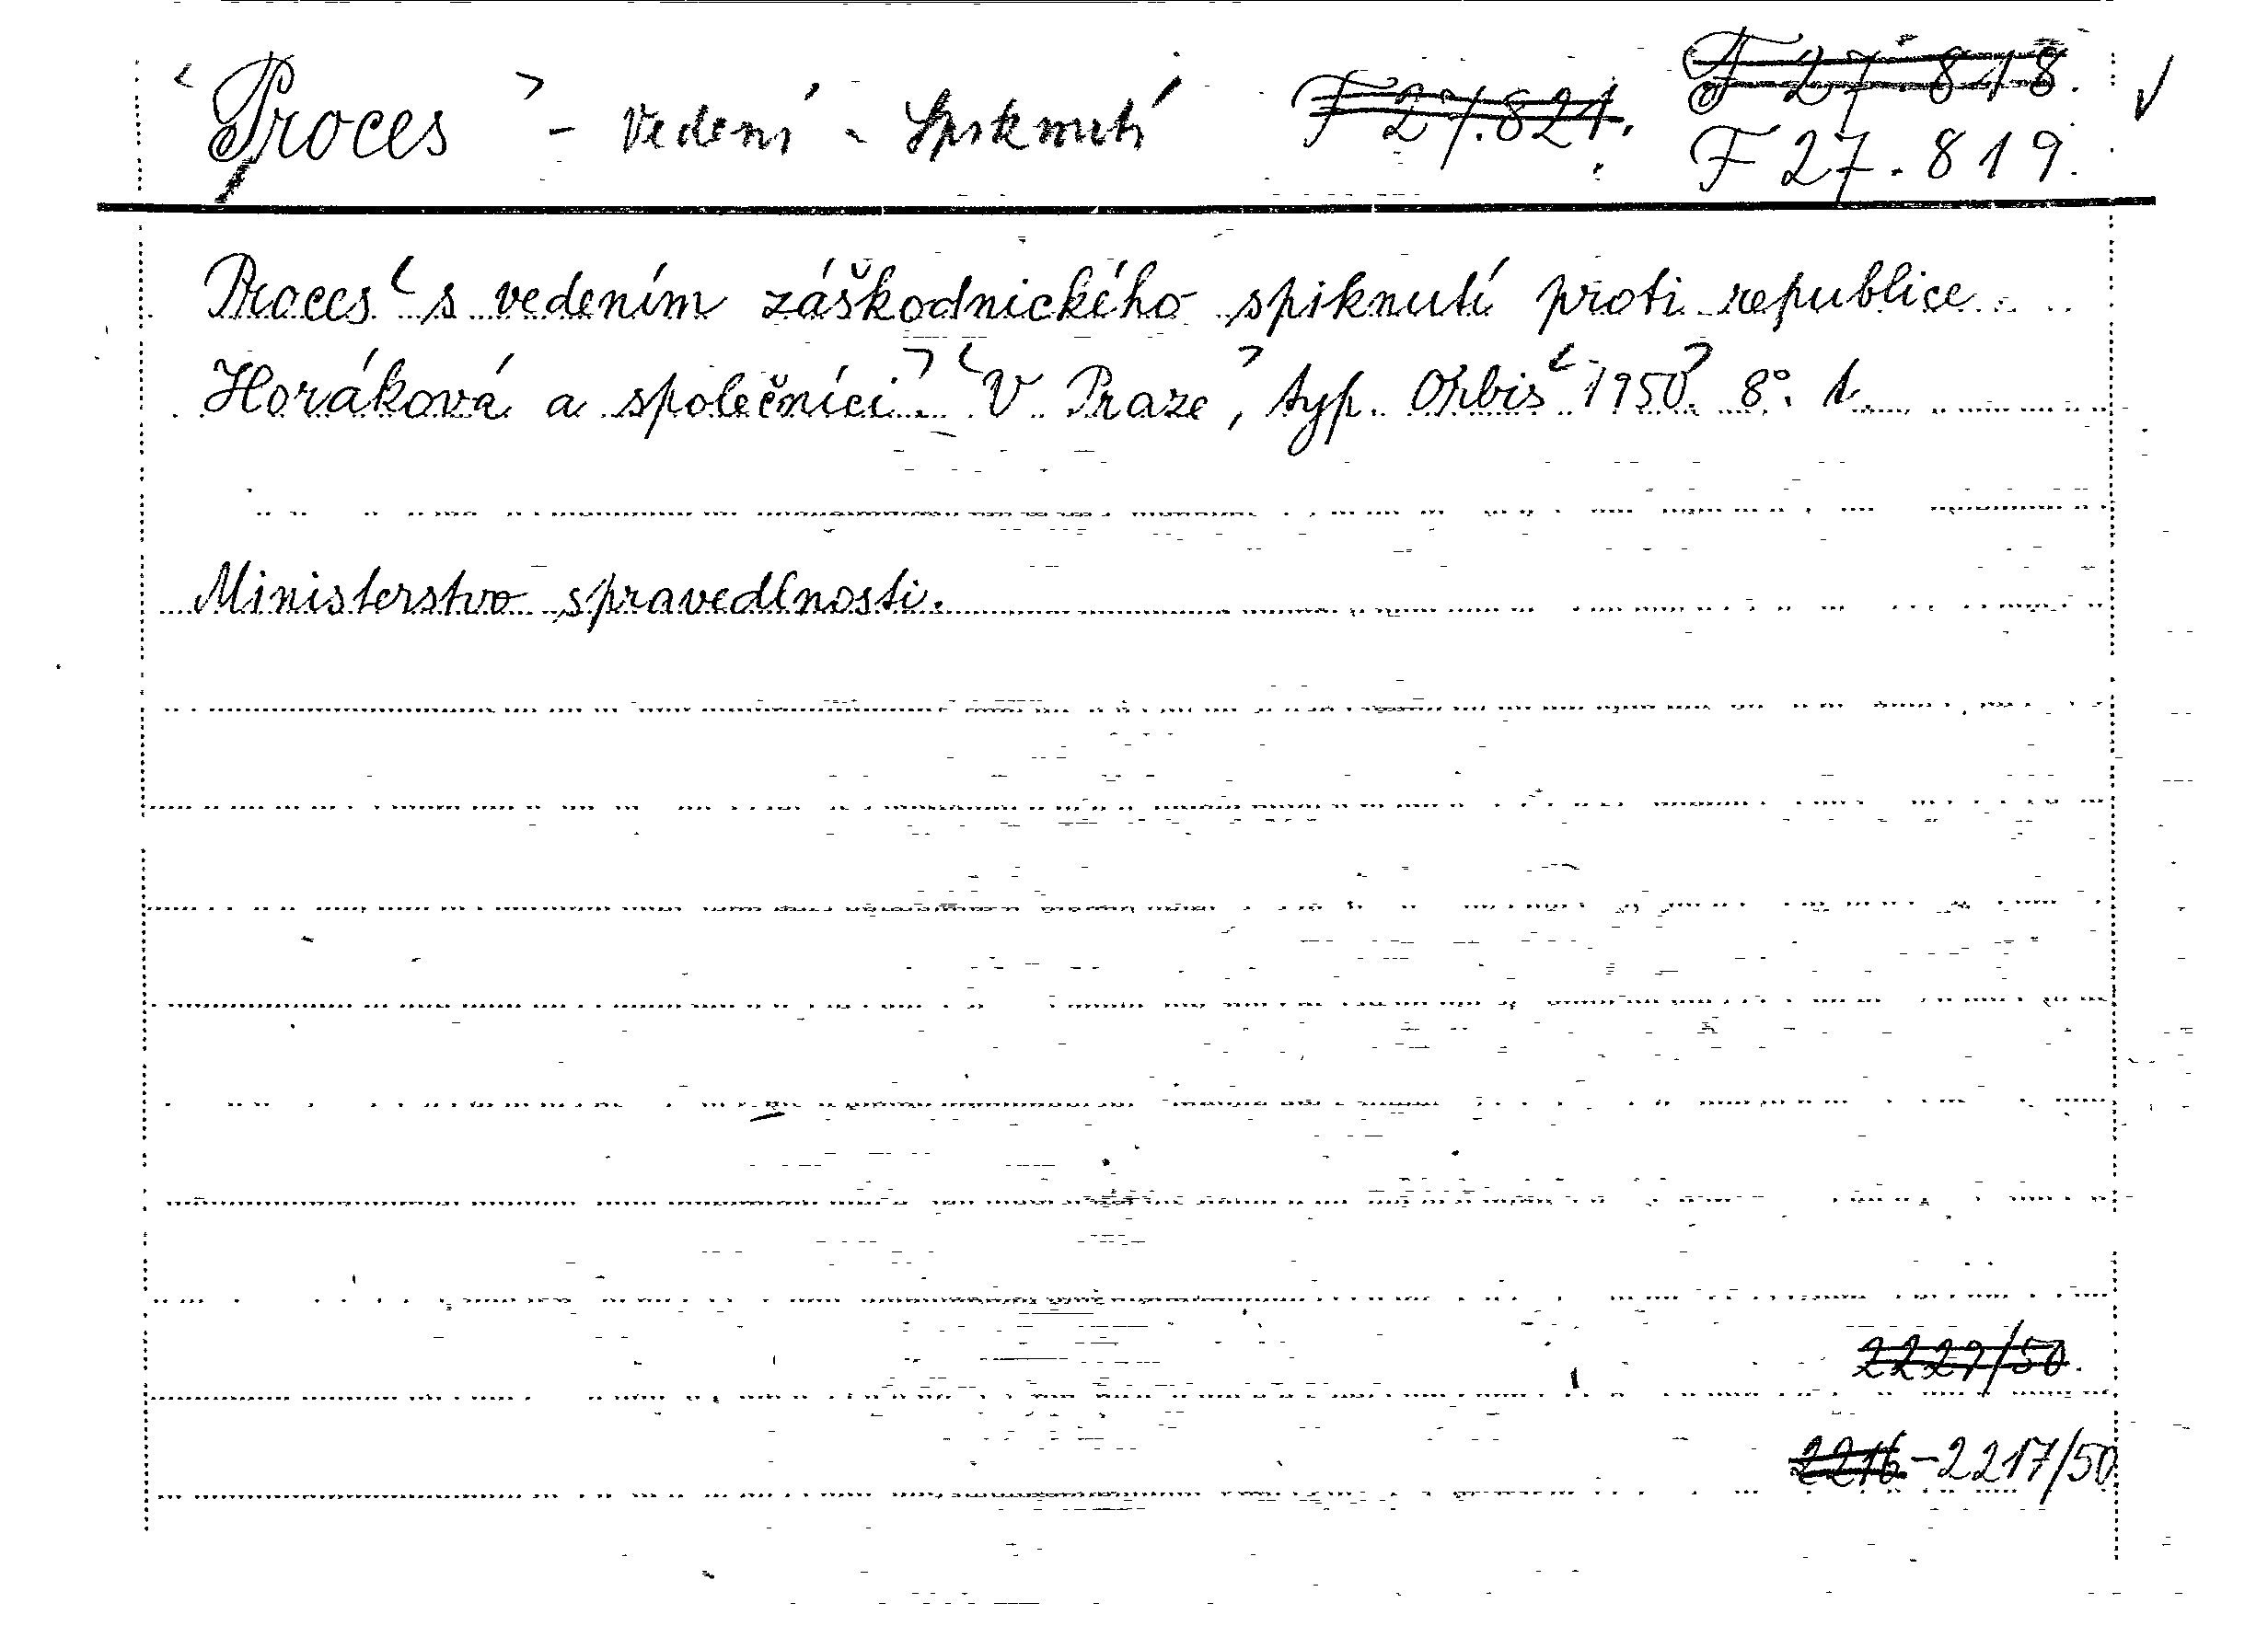 ‹Proces› - Vedení - Spiknutí F 27.821. F 27.818. ✓
F 27.819.
Proces ‹ s vedením záškodnického spiknutí proti republice
Horáková a společníci.› ‹V Praze›, typ. Orbis ‹1950›. 8°. 1.
Ministerstvo spravedlnosti.
2227/50.
2216-2217/50